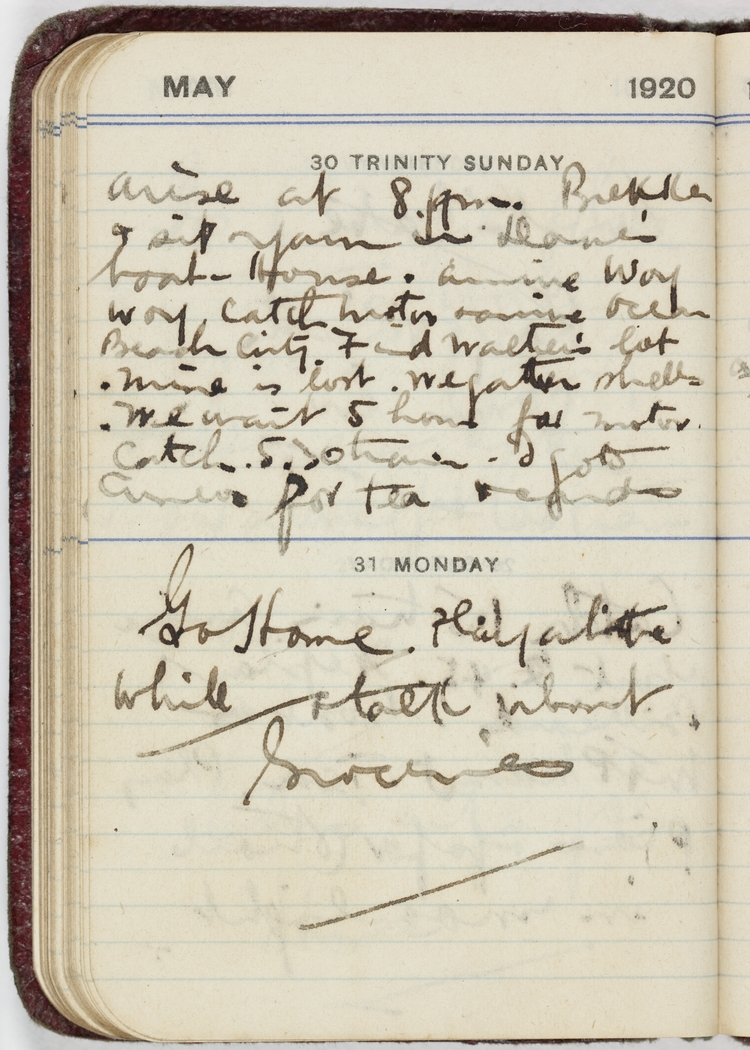 MAY 1920
30 TRINITY SUNDAY
arise at 8. pm. Brekker
& sit yarn in
boat-House. arrive Woy
Woy. Catch motor arrive Ocean
Beach City. Find Walter's lot
. mine is lost. We gather shells
. We wait 5 hours for motor.
Catch. 5.30 train - I go to
for tea
31 MONDAY
Go Home. Play a little
while & talk about
Groceries